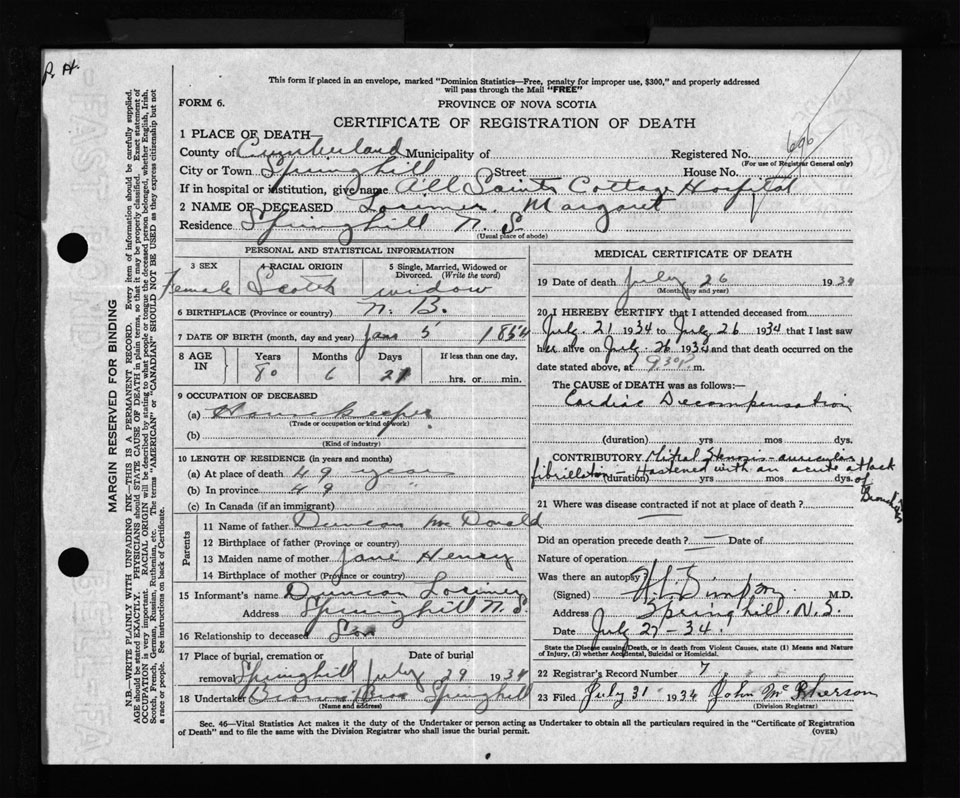 P. H.
This form if placed in an envelope, marked "Dominion Statistics—Free, penalty for improper use, $300," and properly addressed
will pass through the Mail "FREE"
FORM 6.
PROVINCE OF NOVA SCOTIA
CERTIFICATE OF REGISTRATION OF DEATH
1 PLACE OF DEATH—
County of Cumberland Municipality of Registered No. 696
(For use of Registrar General only)
City or Town Springhill Street House No.
If in hospital or institution, give name All Saints Cottage Hospital
2 NAME OF DECEASED Lorimer, Margaret
Residence Springhill N. S.
(Usual place of abode)
PERSONAL AND STATISTICAL INFORMATION
3 SEX 4 RACIAL ORIGIN 5 Single, Married, Widowed or Divorced. (Write the word)
Female Scotch widow
6 BIRTHPLACE (Province or country) N. B.
7 DATE OF BIRTH (month, day and year) Jan 5 1854
8 AGE IN Years Months Days If less than one day,
80 6 21 hrs. or min.
9 OCCUPATION OF DECEASED
(a) Housekeeper
(Trade or occupation or kind of work)
(b)
(Kind of industry)
10 LENGTH OF RESIDENCE (in years and months)
(a) At place of death 49 years
(b) In province 49 "
(c) In Canada (if an immigrant)
Parents
11 Name of father Duncan McDonald
12 Birthplace of father (Province or country)
13 Maiden name of mother Jane Henry
14 Birthplace of mother (Province or country)
15 Informant's name Duncan Lorimer
Address Springhill N. S.
16 Relationship to deceased Son
17 Place of burial, cremation or removal Date of burial
Springhill July 29 1934
18 Undertaker Brown Bros Springhill
(Name and address)
MEDICAL CERTIFICATE OF DEATH
19 Date of death July 26 1934
(Month, day and year)
20 I HEREBY CERTIFY that I attended deceased from
July 21 1934 to July 26 1934 that I last saw
her alive on July 26 1934 and that death occurred on the
date stated above, at 9 30 P. m.
The CAUSE OF DEATH was as follows:—
Cardiac Decompensation
(duration) yrs mos dys.
CONTRIBUTORY Mitral Stenosis - auricular
fibrillation - Hastened with an acute attack
of Bronchitis
(duration) yrs mos dys.
21 Where was disease contracted if not at place of death?
Did an operation precede death? Date of
Nature of operation
Was there an autopsy
(Signed) M.D.
Address Springhill. N.S.
Date July 27-34.
State the Disease causing Death, or in death from Violent Causes, state (1) Means and Nature
of Injury, (2) whether Accidental, Suicidal or Homicidal.
22 Registrar's Record Number 7
23 Filed July 31 1934 John McPherson
(Division Registrar)
Sec. 46—Vital Statistics Act makes it the duty of the Undertaker or person acting as Undertaker to obtain all the particulars required in the "Certificate of Registration
of Death" and to file the same with the Division Registrar who shall issue the burial permit.
(OVER)
MARGIN RESERVED FOR BINDING
N.B.—WRITE PLAINLY WITH UNFADING INK—THIS IS A PERMANENT RECORD. Every item of information should be carefully supplied.
AGE should be stated EXACTLY. PHYSICIANS should STATE CAUSE OF DEATH in plain terms, so that it may be properly classified. Exact statement of
OCCUPATION is very important. RACIAL ORIGIN will be described by stating to what people or tongue the deceased person belonged, whether English, Irish,
Scotch, French, German, Russian, Ruthenian, etc. The terms "AMERICAN" or "CANADIAN" SHOULD NOT BE USED as they express citizenship but not
a race or people. See instructions on back of Certificate.